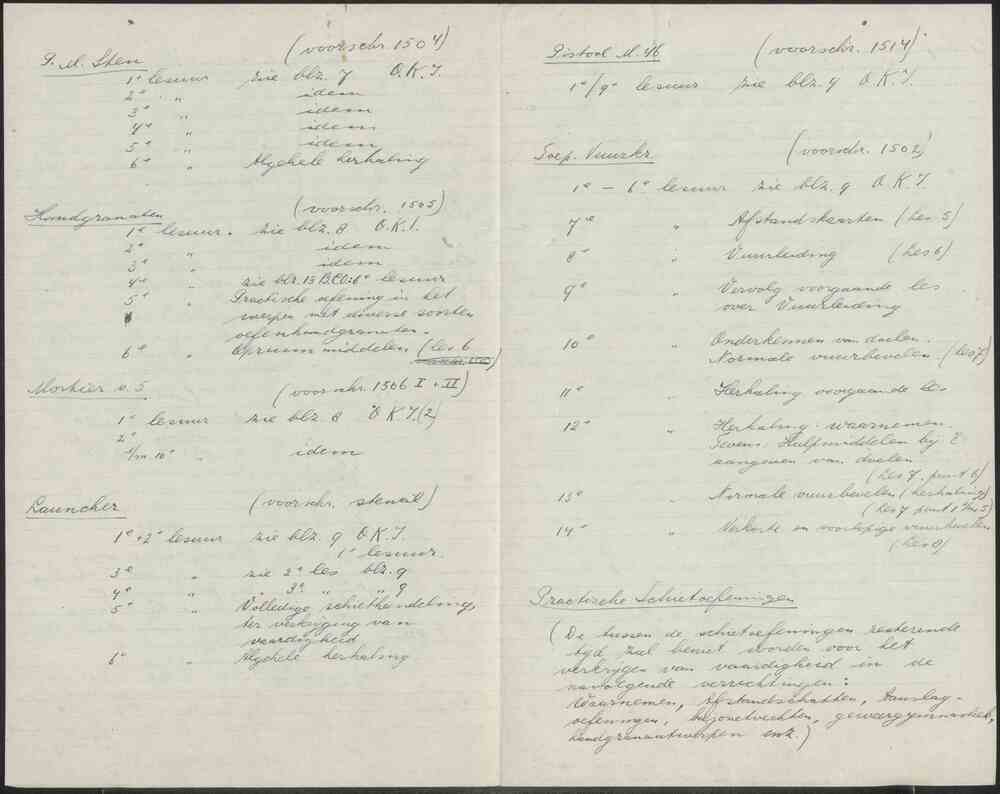 P.M. Sten (voorschr. 1504)
1e lesuur zie blz. 7 O.K.I.
2e " idem
3e " idem
4e " idem
5e " idem
6e " Algehele herhaling
Handgranaten (voorschr. 1505)
1e lesuur. zie blz. 8 O.K.I.
2e " idem
3e " idem
4e " zie blz. 13 lesuur
5e " Practische oefening in het
werpen met diverse soorten
oefenhandgranaten.
6e " Opruim middelen (les 6
Mortier v. 5 (voorschr. 1506 I + II)
1e lesuur zie blz. 8 O.K.I. (2)
2e
t/m 10e " idem
Launcher (voorschr. stencil)
1e + 2e lesuur zie blz. 9 O.K.I.
1e lesuur
3e " zie 2e les blz. 9
4e " " 3e " " 9
5e " Volledige schiethandeling,
ter verkrijging van
vaardigheid
6e " Algehele herhaling
Pistool M. 46 (voorschr. 1514)
1e/9e lesuur zie blz. 9 O.K.I.
Toep. Vuurkr. (voorschr. 1502)
1e - 6e lesuur zie blz. 9 O.K.I.
7e " Afstandskaarten (Les 5)
8e " Vuurleiding (Les 6)
9e " Vervolg voorgaande les
over Vuurleiding
10e " Onderkennen van doelen.
Normale vuurbevelen. (les 7)
11e " Herhaling voorgaande les
12e " Herhaling: waarnemen.
Tevens: Hulpmiddelen bij 't
aangeven van doelen
(Les 7. punt 6)
13e " Normale vuurbevelen (herhaling)
(Les 7 punt 1 t/m 5)
14e " Verkorte en voorlopige vuurbevelen
(Les 8)
Practische Schietoefeningen
(De tussen de schietoefeningen resterende
tijd zal benut worden voor het
verkrijgen van vaardigheid in de
navolgende verrichtingen:
Waarnemen, Afstandschatten, Aanslag-
oefeningen, bajonetvechten, geweergymnastiek,
handgranaatwerpen enz.)